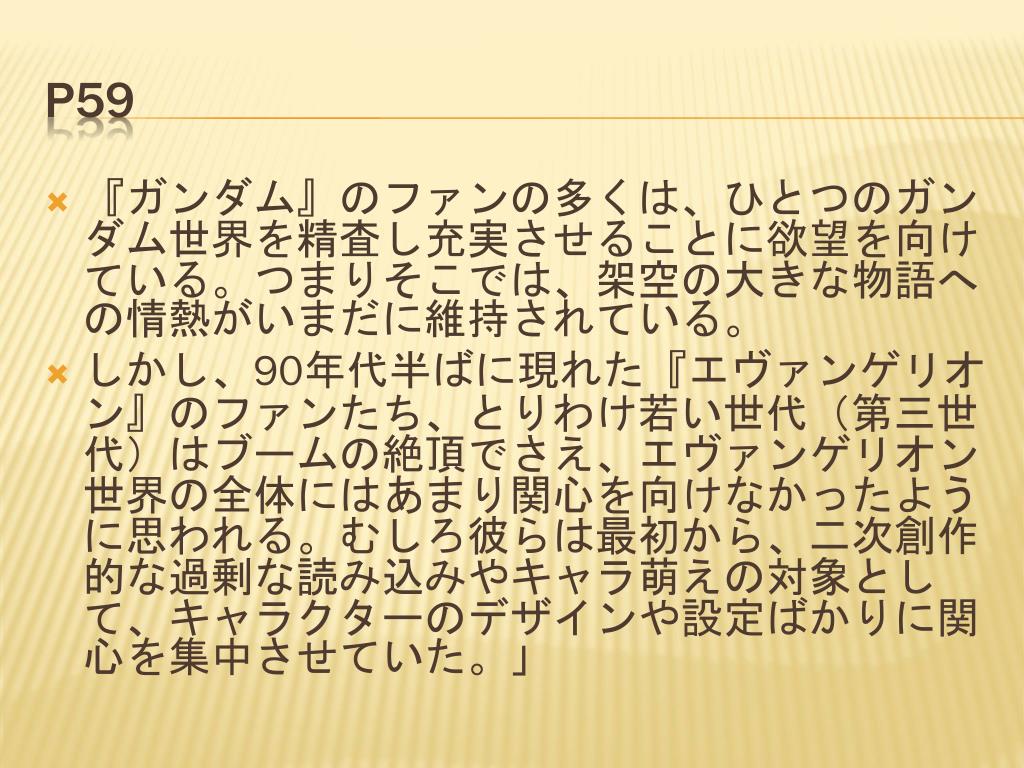 P59
『ガンダム』のファンの多くは、ひとつのガン
ダム世界を精査し充実させることに欲望を向け
ている。つまりそこでは、架空の大きな物語へ
の情熱がいまだに維持されている。
しかし、90年代半ばに現れた『エヴァンゲリオ
ン』のファンたち、とりわけ若い世代（第三世
代）はブームの絶頂でさえ、エヴァンゲリオン
世界の全体にはあまり関心を向けなかったよう
に思われる。むしろ彼らは最初から、二次創作
的な過剰な読み込みやキャラ萌えの対象とし
て、キャラクターのデザインや設定ばかりに関
心を集中させていた。」